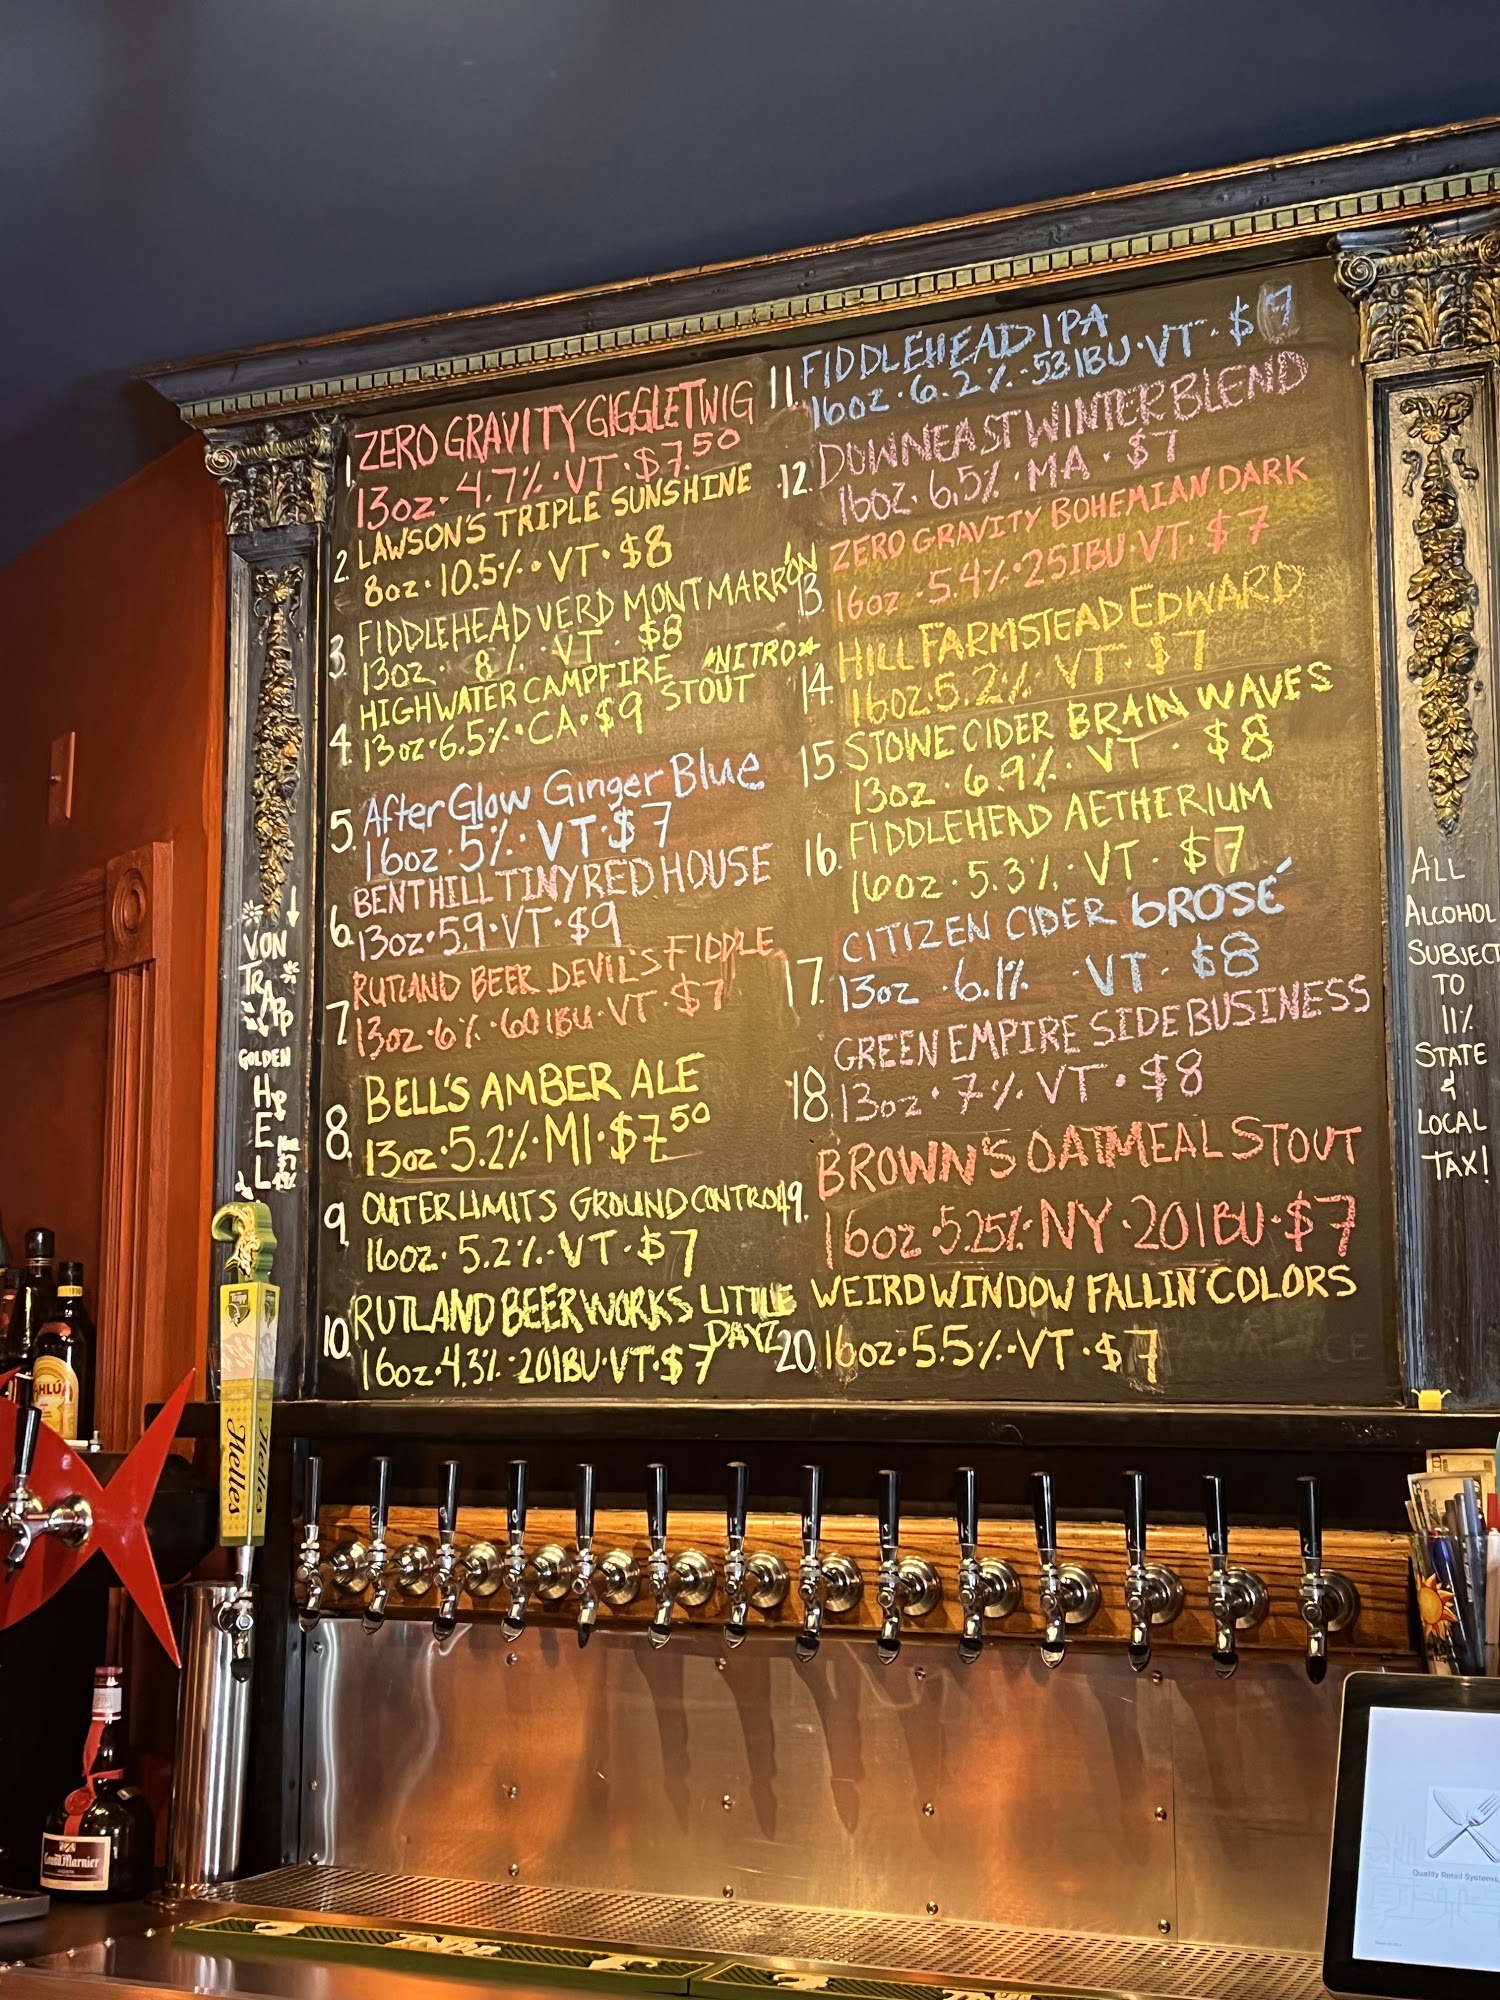 1. ZERO GRAVITY GIGGLETWIG
13oz · 4.7% · VT · $7.50
2. LAWSON'S TRIPLE SUNSHINE
8oz · 10.5% · VT · $8
3. FIDDLEHEAD VERD MONT MARRÓN
13oz · 8% · VT · $8
4. HIGHWATER CAMPFIRE STOUT *NITRO*
13oz · 6.5% · CA · $9
5. AfterGlow Ginger Blue
16oz · 5% · VT · $7
6. BENT HILL TINY RED HOUSE
13oz · 5.9 · VT · $9
7. RUTLAND BEER DEVIL'S FIDDLE
13oz · 6% · 60IBU · VT · $7
8. BELL'S AMBER ALE
13oz · 5.2% · MI · $7.50
9. OUTER LIMITS GROUND CONTROL
16oz · 5.2% · VT · $7
10. RUTLAND BEERWORKS LITTLE DAYZ
16oz · 4.3% · 20IBU · VT · $7
11. FIDDLEHEAD IPA
16oz · 6.2% · 53IBU · VT · $7
12. DOWNEAST WINTER BLEND
16oz · 6.5% · MA · $7
13. ZERO GRAVITY BOHEMIAN DARK
16oz · 5.4% · 25IBU · VT · $7
14. HILL FARMSTEAD EDWARD
16oz · 5.2% · VT · $7
15. STOWE CIDER BRAIN WAVES
13oz · 6.9% · VT · $8
16. FIDDLEHEAD AETHERIUM
16oz · 5.3% · VT · $7
17. CITIZEN CIDER bROSÉ
13oz · 6.1% · VT · $8
18. GREEN EMPIRE SIDE BUSINESS
13oz · 7% VT · $8
19. BROWN'S OATMEAL STOUT
16oz · 5.25% · NY · 20IBU · $7
20. WEIRD WINDOW FALLIN' COLORS
16oz · 5.5% · VT · $7
VON
TRAPP
GOLDEN
HEL
ALL
ALCOHOL
SUBJECT
TO
11%
STATE
&
LOCAL
TAX!
Trapp
Helles
Helles
Grand Marnier
Quality Retail Systems